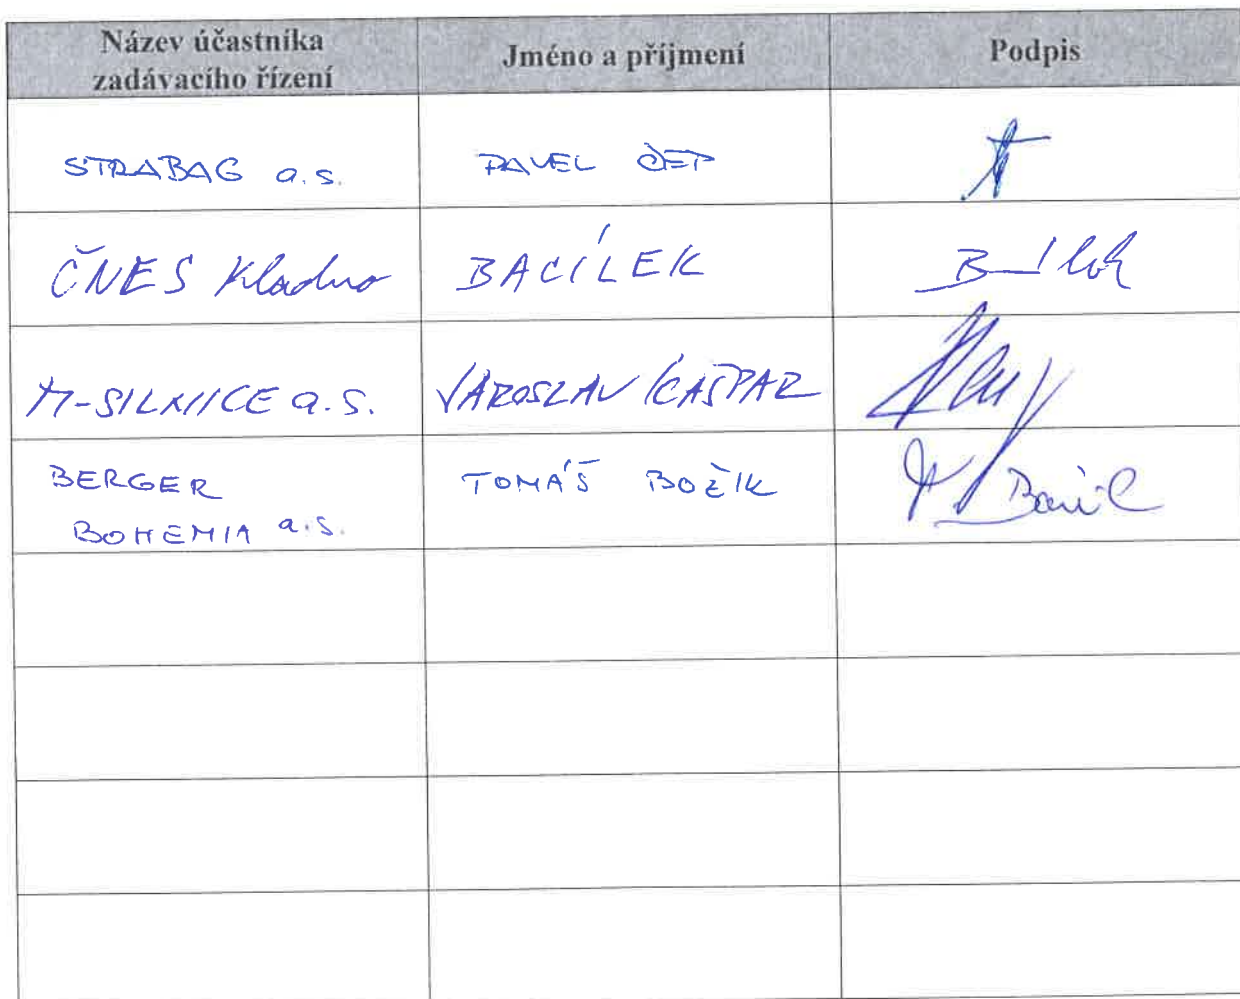 Název účastníka
zadávacího řízení
Jméno a příjmení
Podpis
STRABAG a.s.
PAVEL ČEP
ČNES Kladno
BACÍLEK
M-SILNICE a.s.
JAROSLAV KAŠPAR
BERGER
BOHEMIA a.s.
TOMÁŠ BOŽIK